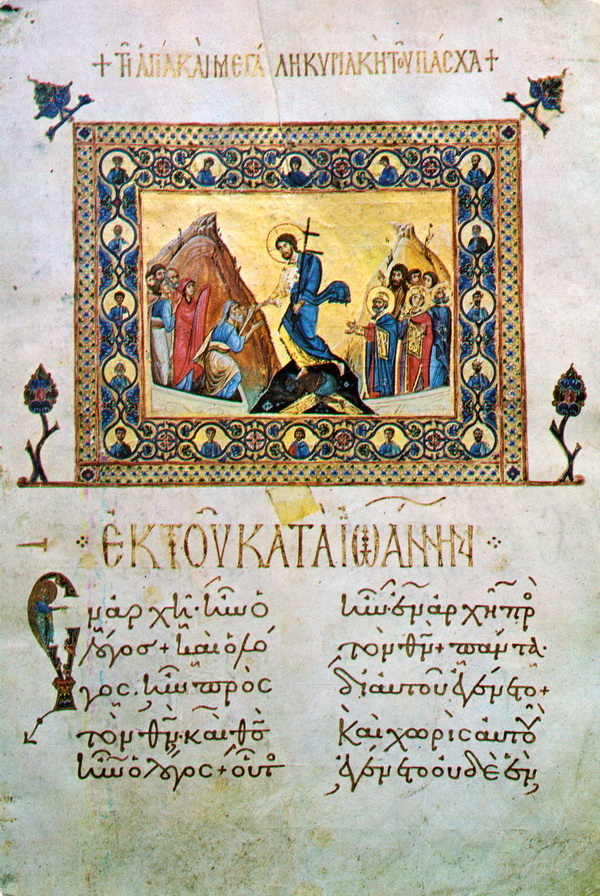 + Τῇ ἁγίᾳ καὶ μεγάλῃ κυριακῇ τοῦ πάσχα +
ἐκ τοῦ κατὰ ἰωάννην
Ἐν ἀρχῆ· ἦν ὁ
λόγος + καὶ ὁ λό
γος, ἦν πρὸς
τὸν θν̄· καὶ θς̄
ἦν ὁ λόγος + οὗτ
ἦν ἐν ἀρχῆ πρ
τὸν θν̄ + πάντα
δι αὐτοῦ ἐγένετο +
καὶ χωρὶς αὐτοῦ
ἐγένετο οὐδὲ ἕν,